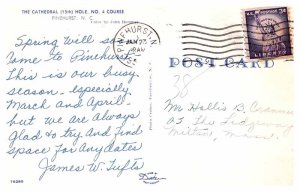 THE CATHEDRAL (15th) HOLE, NO. 4 COURSE
PINEHURST, N. C.
Spring will soon
come to Pinehurst.
This is our busy
season - especially
March and April -
but we are always
glad to try and find
space for any dates
James W. Tufts
PINEHURST, N.
JAN 23
LIBERTY
3¢
POST CARD
38
Mr Hollis B.
At The
Milton, Mass.